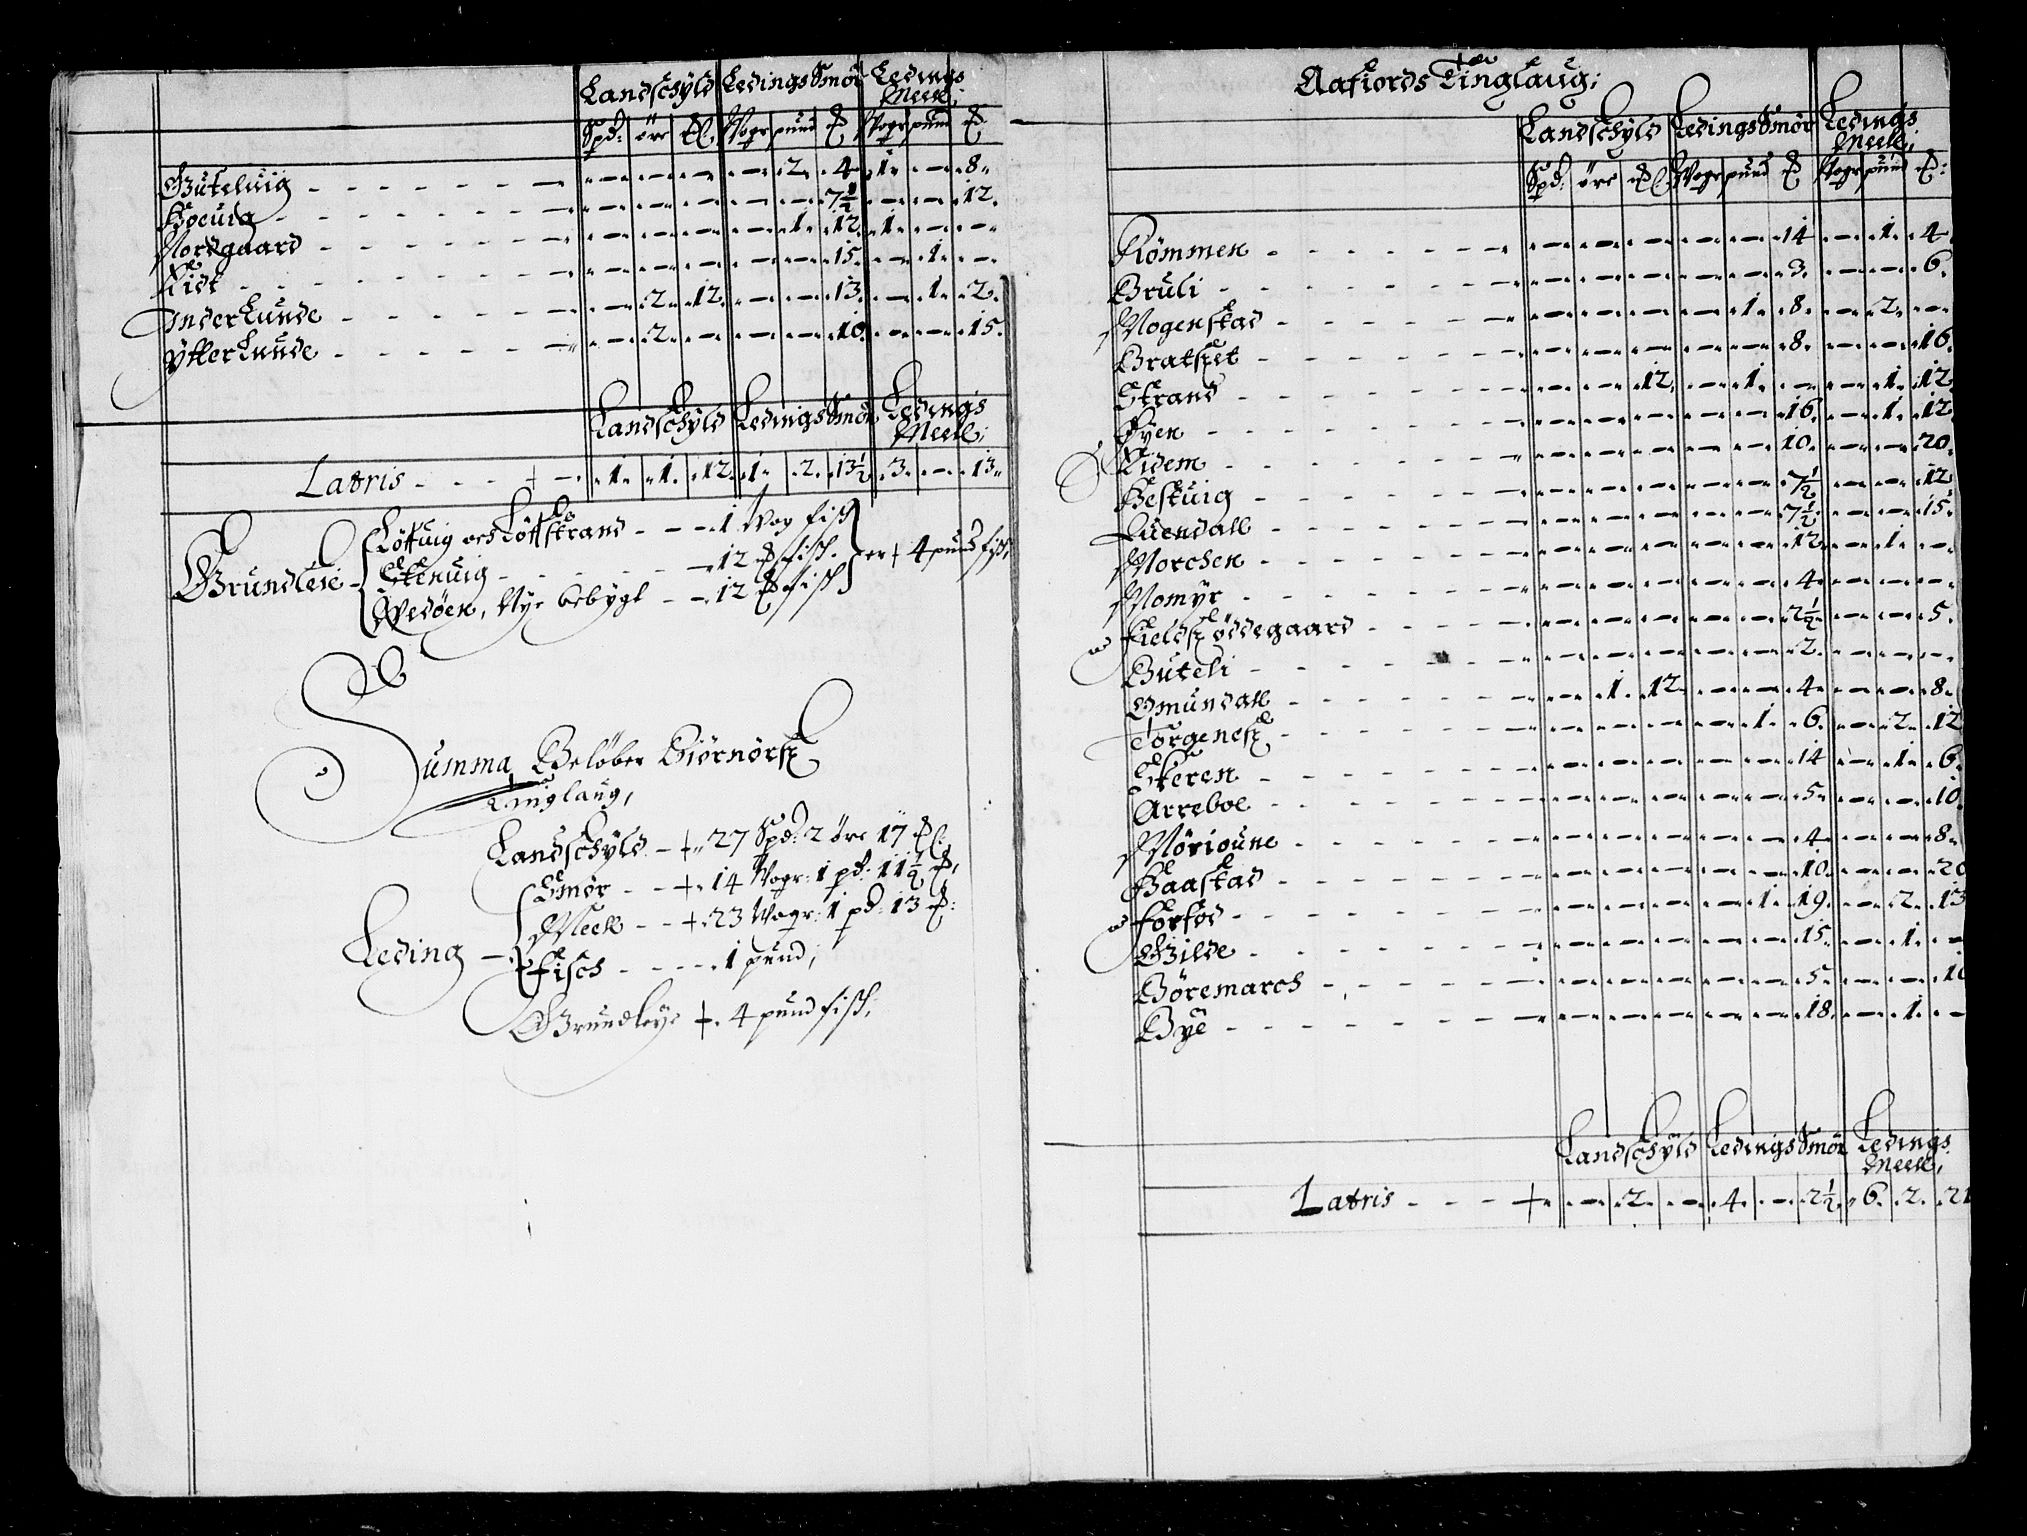 Landschÿld Ledings Smör Ledings
Meell;
Spd: öre Wogr pund Wogr pund
Buteluig - - - - - - 2. 4. 1. - 8.
Hoeuig - - - - - - 7½ - - 12.
Nordgaard - - - - - 1. 12. 1. - -
- - - - - - 15. - 1. -
Inderlunde - - - - - 2. 12. - - 13. - 1. 2.
ÿtterlunde - - - - - 2. - - - 10. - - 15.
Landschÿld Ledings Smör Ledings
Meell;
Latris - - - + - 1. 1. 12. 1. 2. 13½ 3. - 13.
Löfuig och - - 1 Wog fisk
Grundleie - - - 12 fisk. er + 4 pund fisk;
Wedöen, Nye bebygt - - 12 fisk
Summa Belöber Biörnör
Tinglaug,
Landschÿld - + 27 Spd: 2 öre 17
Smör - - + 14 Wogr: 1 pd: 11½
Leding - Meell - - + 23 Wogr: 1 pd: 13
Fisch - - - - 1 pund;
Grundleye + 4 pund fisk;
Aafiords Tinglaug;
Landschÿld Ledings Smör Ledings
Meell;
Spd: öre Wogr pund Wogr pund
Römmen - - - - - - 14 - 1. 4
Bruli - - - - - - 3. - - 6.
Mogenstad - - - - - 1. 8. - 2. -
Bratset - - - - - - 8. - - 16.
Strand - - - - - 12. - 1. - - 1. 12
Øyen - - - - - - 16. - 1. 12
- - - - - - 10. - - 20.
Hestuig - - - - - - 7½ - - 12
Quendall - - - - - - 7½ - - 15.
Morchen - - - - - - 12. - 1. -
Momÿr - - - - - - 4. - - -
Field ödegaard - - - - 2½ - - 5.
Buteli - - - - - - 2. - - -
Gmundall - - - - 1. 12 - - 4. - - 8.
Torgenes - - - - - 1. 6. - 2. 12
Skeren - - - - - - 14 - 1. 6.
Arreboe - - - - - - 5. - - 10
Mörioune - - - - - - 4. - - 8.
Haastad - - - - - - 10. - - 20
Forfod - - - - - 1. 19. - 2. 13
Gilde - - - - - - 15. - 1. -
Böremarch - - - - - 5. - - 10
Bye - - - - - - 18. - 1. -
Landschÿld Ledings Smör Ledings
Meell;
Latris - - - + - 2. - 4. - 2½ 6. 2. 21